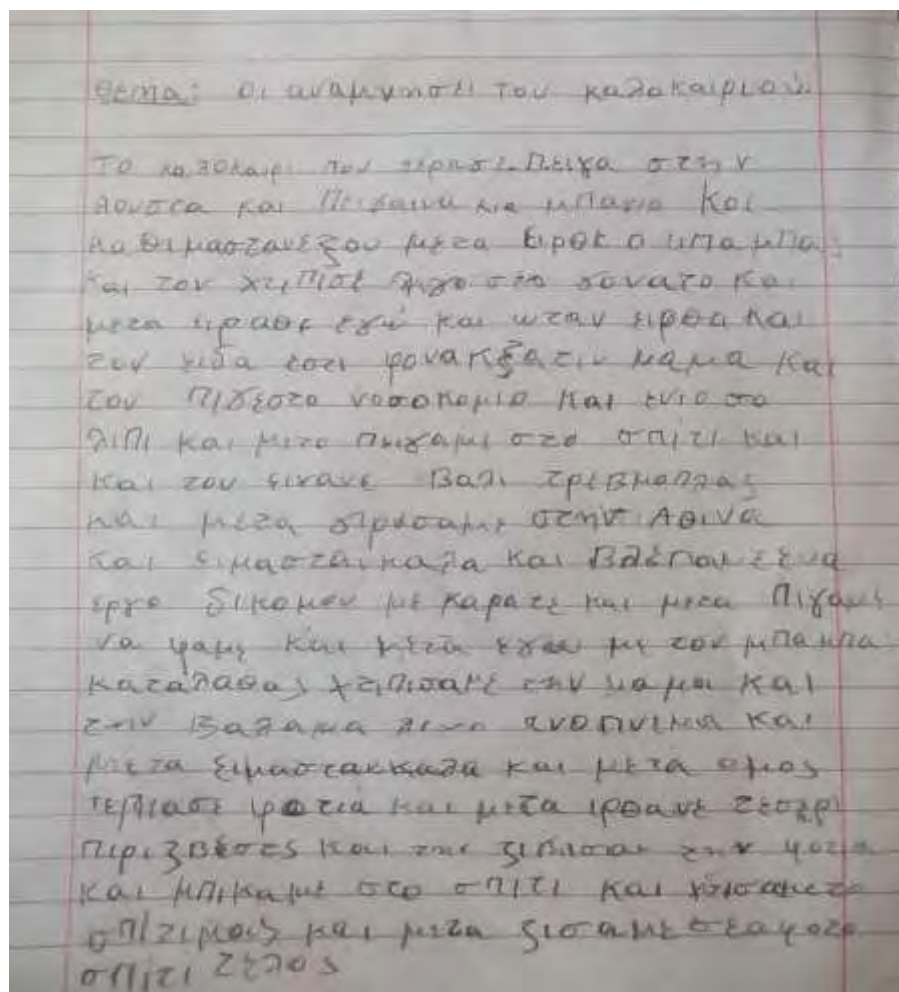 Θεμα: Οι αναμνησει του καλοκαιριού
Το καλοκαιρι που περησε πειγα στην
λουτσα και Πειγαινα για μπανιο και
καθιμαστανεξου μετα ειρθε ο μπαμπα
και τον χτιπισε λιγο στο γονατο και
μετα ειρθα εγώ και ωταν ειρθα και
τον ειδα ετσι φοναξα τιν μαμα και
τον Πιγεστο νοσοκομιο και ενιο στο
λιπι και μετα πειγαμι στο σπίτι και
και του ειχανε βαλι τρεις μπαλλας
και μετα γιρισαμε στην Αθινα
και ειμασται καλα και Βλέπαμε ενα
εργο δικομου με καρατε και μετα Πιγαμε
να φαμε και μετα εγω με τον μπαμπα
καταλαθος χτιπισαμε την μαμα και
την Βαλαμε λινο και
μετα ειμαστακαλα και μετα ομος
επιασε φοτια και μετα ιρθανε τεσερι
πιριζβέστες και την σιβισαν την φοτια
και μπικαμε στο σπιτι και
σπιτιμας και μετα ζισαμε
σπιτι Τελος